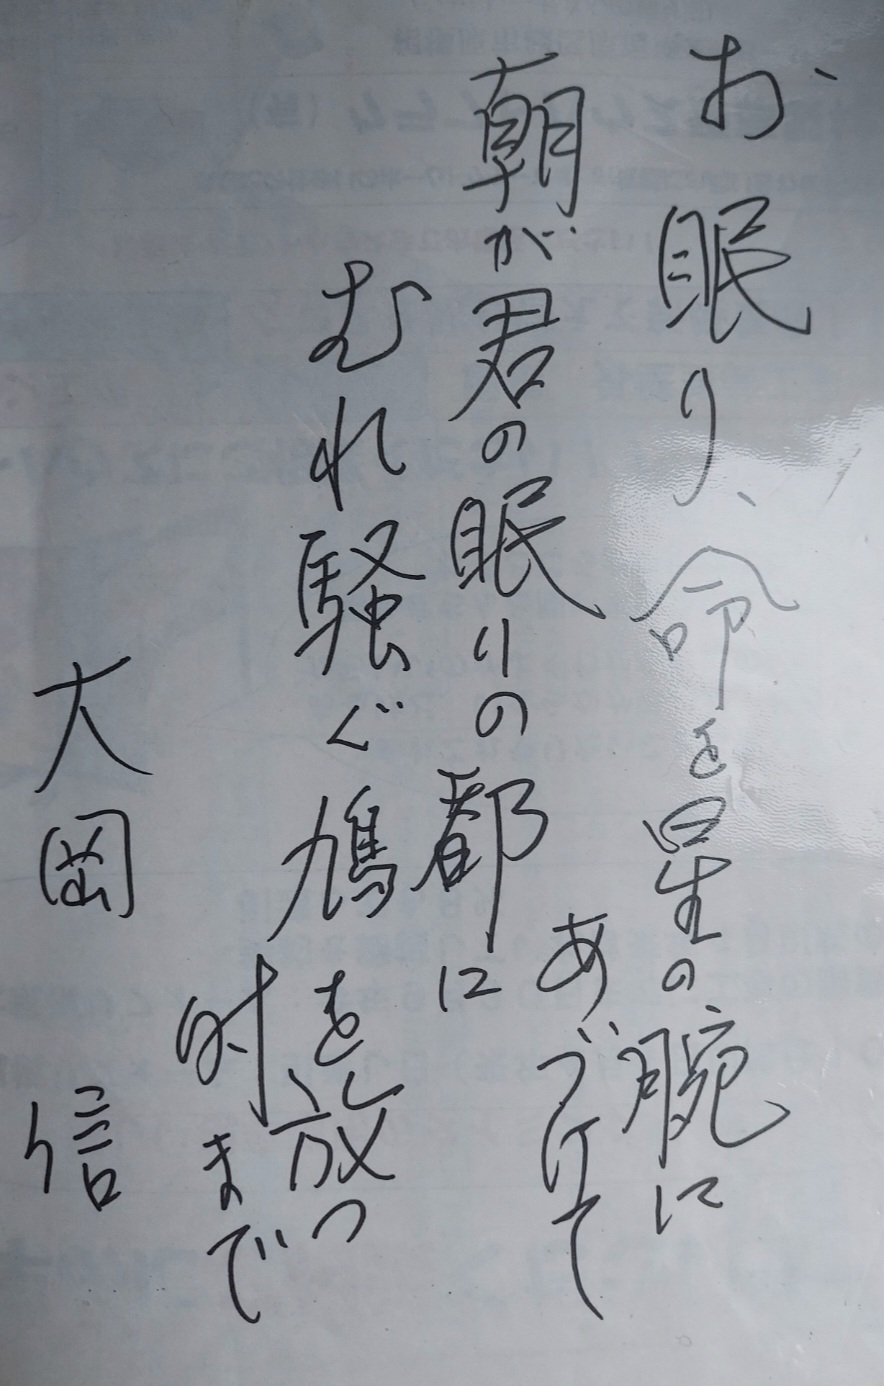 お眠り、命を星の腕に
あづけて
朝が君の眠りの都に
むれ騒ぐ鳩を放つ
時まで
大岡信